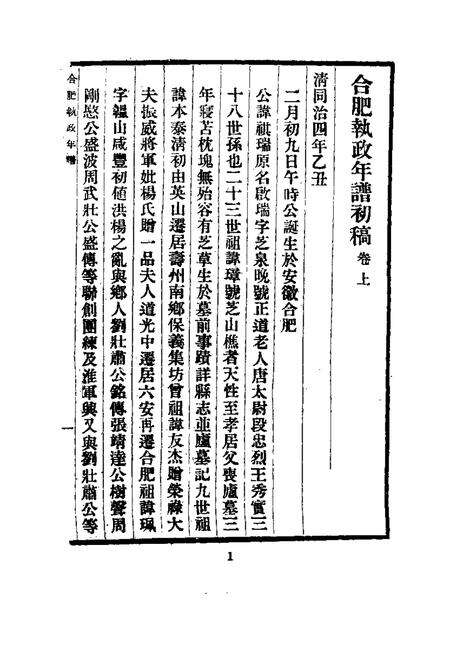 合肥執政年譜初稿 卷上
清同治四年乙丑
二月初九日午時公誕生於安徽合肥
公諱祺瑞原名啟瑞字芝泉晚號正道老人唐太尉段忠烈王秀實三
十八世孫也二十三世祖諱瑋號芝山樵者天性至孝居父喪廬墓三
年寢苫枕塊無始容有芝草生於墓前事蹟詳縣志並廬墓記九世祖
諱本泰清初由英山遷居壽州南鄉保義集坊曾祖諱友杰贈榮祿大
夫振威將軍妣楊氏贈一品夫人道光中遷居六安再遷合肥祖諱珮
字韞山咸豐初值洪楊之亂與鄉人劉壯肅公銘傳張靖達公樹聲周
剛愍公盛波周武壯公盛傳等聯創團練及淮軍興又與劉壯肅公等
合肥執政年譜
一
1